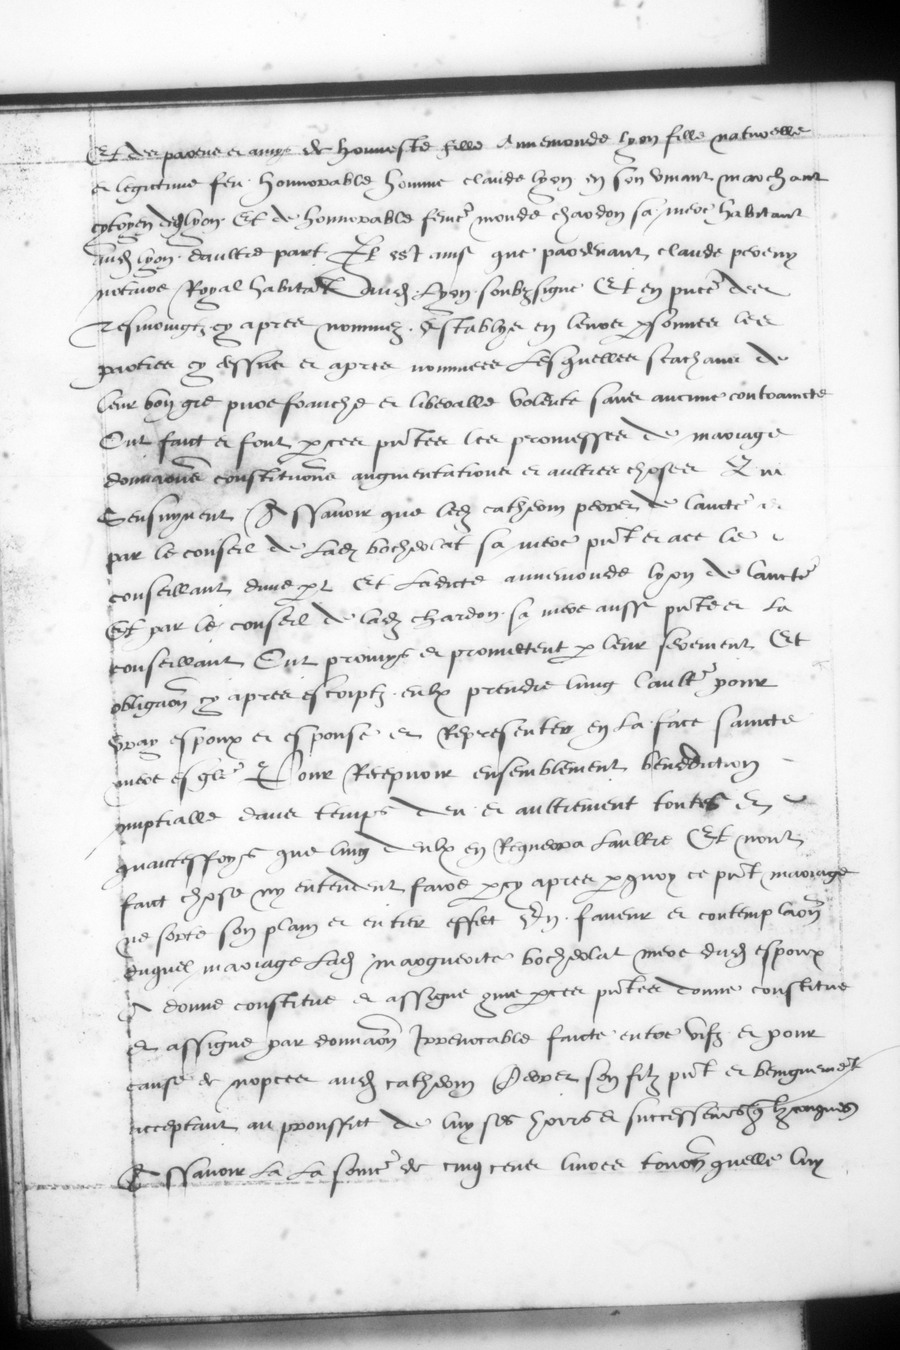 Et des parens et amys de honneste fille Annemonde lyon fille naturelle
et legitime feu honnorable homme claude lyon en son vivant marchant
cytoyen dud lyon Et de honnorable feme monde chardon sa mere habitant
aud lyon daultre part Il est ainsi que pardevant claude peveny
notaire Royal habitant aud Lyon soubzsigne Et en pnce des
tesmoingtz cy apres nommez establyes en leurs psonnes les
parties cy dessus et apres nommees Lesquelles scachant de
leur bon gre pure franche et liberalle volente sans aucune contraincte
Ont faict et font p ces pntes les promesses de mariage
donnaons constitutions augmentations et aultres choses Qui
Sensuyvent Assavoir que led de laucte
par le conseil de Lad sa mere pnt et ace le
conseillant dune pt Et Ladicte annemonde lyon de laucte
Et par le conseil de lad chardon sa mere aussi pnte et La
conseillant Ont promys et promettent p leur serement Et
obligaon cy apres escriptz eulx prendre lung laultre pour
vray espoux et espouse et Representer en La face saincte
mere esglise Pour Recepvoir ensemblement benediction
nuptialle dans temps deu et aultrement toutes et
quanteffoys que lung deulx en Requerra Laultre Et nont
faict chose ny entendent faire p cy apres p quoy ce pnt mariage
ne sorte son plain et entier effect En faveur et contemplaon
duquel mariage Lad marguerite mere dud espoux
A donne constitue et assigne p ces pntes donne constitue
et assigne par donnaon Irrevocable faicte entre vifz et pour
cause de nopces aud son filz pnt et benignement
acceptant au prouffict de luy ses hoirs et successeurs
Assavoir La La some de cinq cens livres tournoys quelle luy